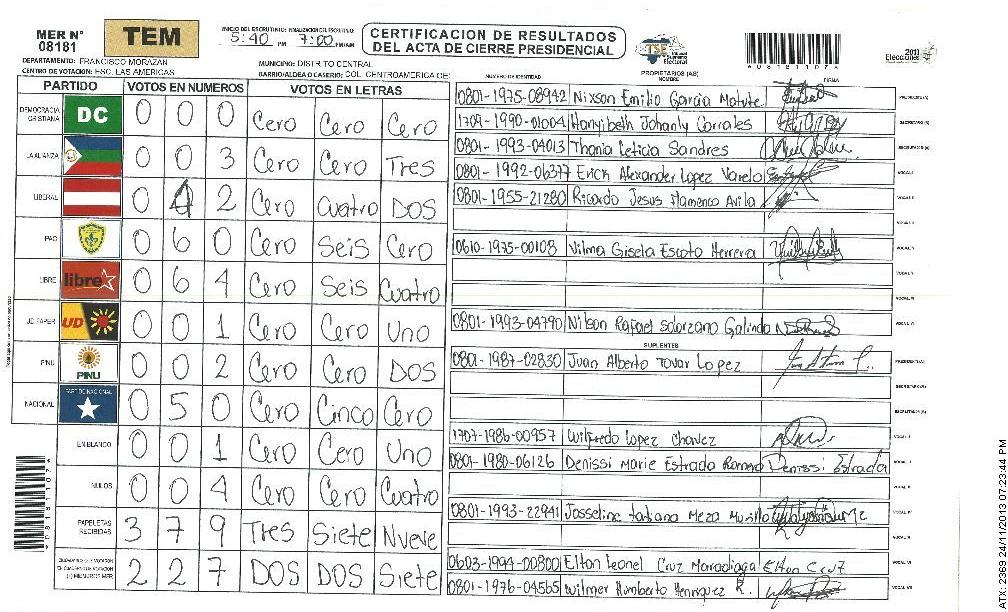 MER N° 08181
TEM
INICIO DEL ESCRUTINIO: FINALIZACION DEL ESCRUTINIO:
5:40 PM 7:00 PM/AM
CERTIFICACION DE RESULTADOS
DEL ACTA DE CIERRE PRESIDENCIAL
TSE Tribunal Supremo Electoral
Elecciones 2013
DEPARTAMENTO: FRANCISCO MORAZAN
CENTRO DE VOTACION: ESC. LAS AMERICAS
MUNICIPIO: DISTRITO CENTRAL
BARRIO/ALDEA O CASERIO: COL. CENTROAMERICA OE
PARTIDO VOTOS EN NUMEROS VOTOS EN LETRAS
DEMOCRACIA CRISTIANA DC 0 0 0 Cero Cero Cero
LA ALIANZA 0 0 3 Cero Cero Tres
LIBERAL 0 4 2 Cero Cuatro DOS
PAC 0 6 0 Cero Seis Cero
LIBRE libre 0 6 4 Cero Seis Cuatro
UD-FAPER UD 0 0 1 Cero Cero Uno
PINU PINU 0 0 2 Cero Cero DOS
NACIONAL PARTIDO NACIONAL 0 5 0 Cero Cinco Cero
EN BLANCO 0 0 1 Cero Cero Uno
NULOS 0 0 4 Cero Cero Cuatro
PAPELETAS RECIBIDAS 3 7 9 Tres Siete Nueve
2 2 7 DOS DOS Siete
NUMERO DE IDENTIDAD PROPIETARIOS (AS) NOMBRE FIRMA
0801-1975-08942 Nixson Emilio Garcia Matute PRESIDENTE(A)
1709-1990-01004 Hanyibeth Johanly Corrales SECRETARIO(A)
0801-1993-04013 Thania Leticia Sandres ESCRUTADOR(A)
0801-1992-06377 Erick Alexander Lopez Varela VOCAL I
0801-1955-21280 Ricardo Jesus Flamenco Avila VOCAL II
0610-1975-00108 Vilma Gisela Escoto Herrera
0801-1993-04790 Nilson Rafael Solorzano Galindo
SUPLENTES
0801-1987-02830 Juan Alberto Tovar Lopez PRESIDENTE(A)
SECRETARIO(A)
ESCRUTADOR(A)
1707-1986-00957 Wilfredo Lopez Chavez VOCAL I
0801-1980-06126 Denissi Marie Estrada Romero Denissi Estrada
0801-1993-22941
0603-1994-00800 Elton Leonel Cruz Maradiaga Elton Cruz
0801-1976-04565 Wilmer Humberto Henriquez R.
08181107
ATX: 2369 24/11/2013 07:23:44 PM